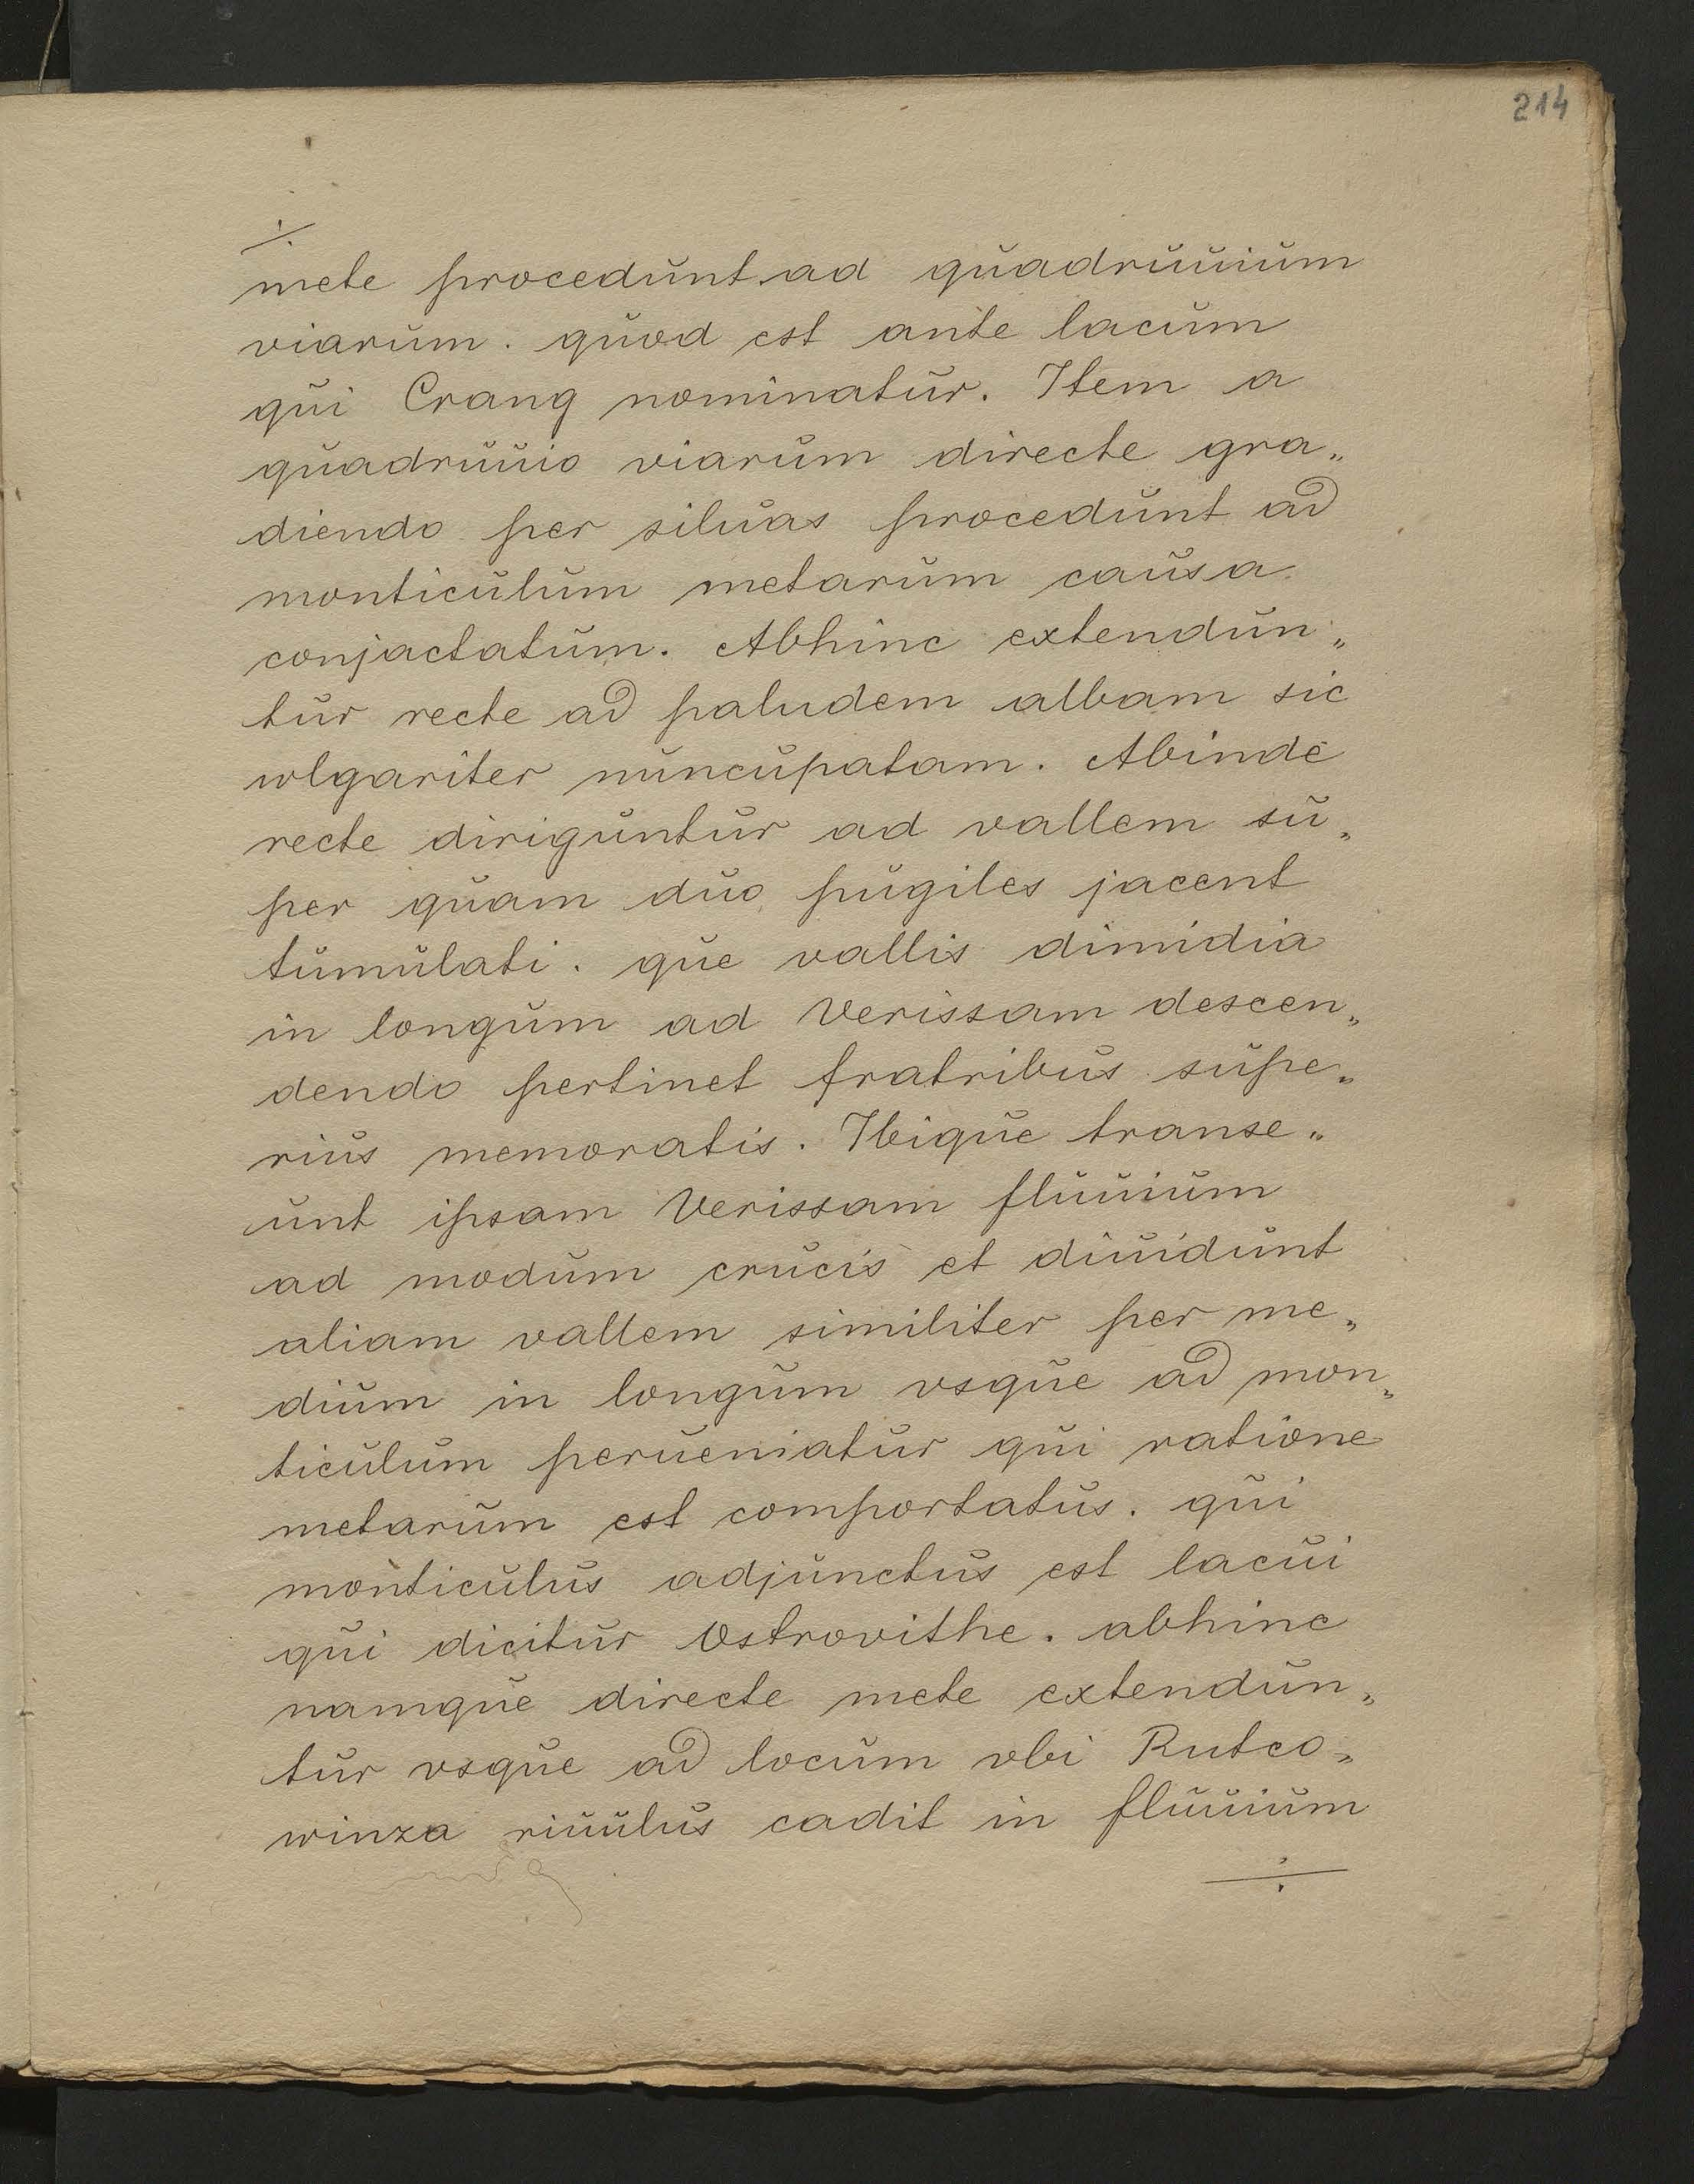 214
⁒
mete procedunt ad quadruuium
viarum. quod est ante lacum
qui Crang nominatur. Item a
quadruuio viarum directe gra„
diendo per siluas procedunt ad
monticulum metarum causa
conjactatum. Abhinc extendun„
tur recte ad paludem albam sic
wlgariter nuncupatam. Abinde
recte diriguntur ad vallem su„
per quam duo pugiles jacent
tumulati. que vallis dimidia
in longum ad Verissam descen„
dendo pertinet fratribus supe„
rius memoratis. Ibique transe„
unt ipsam Verissam fluuium
ad modum crucis et diuidunt
aliam vallem similiter per me„
dium in longum vsque ad mon„
ticulum perueniatur qui ratione
metarum est comportatus. qui
monticulus adjunctus est lacui
qui dicitur Vstrovithe. abhinc
namque directe mete extendun„
tur vsque ad locum vbi Rutco„
winza riuulus cadit in fluuium
÷